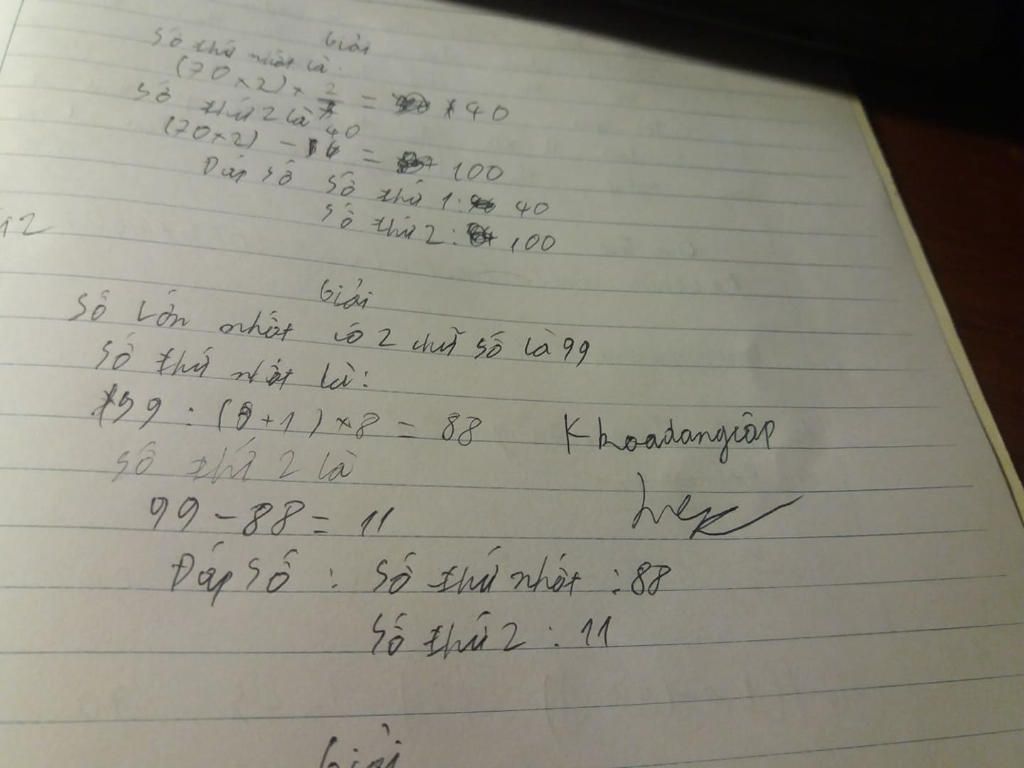 Giải
Số thứ nhất là:
(70 × 2) × 2/7 = 40
Số thứ 2 là
(70 × 2) - 40 = 100
Đáp số Số thứ 1: 40
Số thứ 2: 100
i 2
Giải
Số lớn nhất có 2 chữ số là 99
Số thứ nhất là:
99 : (8 + 1) × 8 = 88
Khoadangiôp
Số thứ 2 là
99 - 88 = 11
Đáp số : Số thứ nhất : 88
Số thứ 2 : 11
Giải